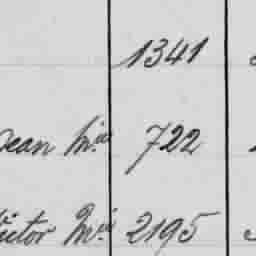 1341
Jean M.ie 722
Victor M.ie 2195